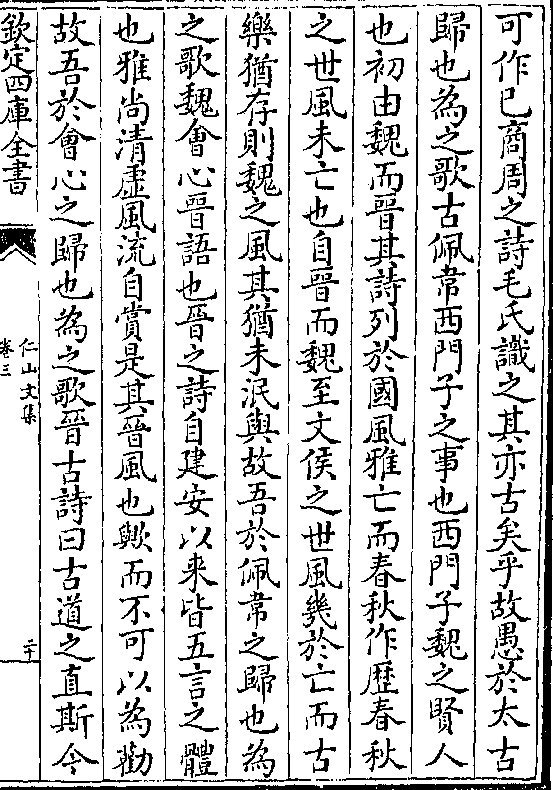 可作已商周之詩毛氏識之其亦古矣乎故愚於太古
歸也為之歌古佩韋西門子之事也西門子魏之賢人
也初由魏而晉其詩列於國風雅亡而春秋作歷春秋
之世風未亡也自晉而魏至文侯之世風幾於亡而古
樂猶存則魏之風其猶未泯與故吾於佩韋之歸也為
之歌魏會心晉語也晉之詩自建安以来皆五言之體
也雅尚清虛風流自賞是其晉風也歟而不可以為勸
故吾於會心之歸也為之歌晉古詩曰古道之直斯今
欽定四庫全書
仁山文集
卷三
二十